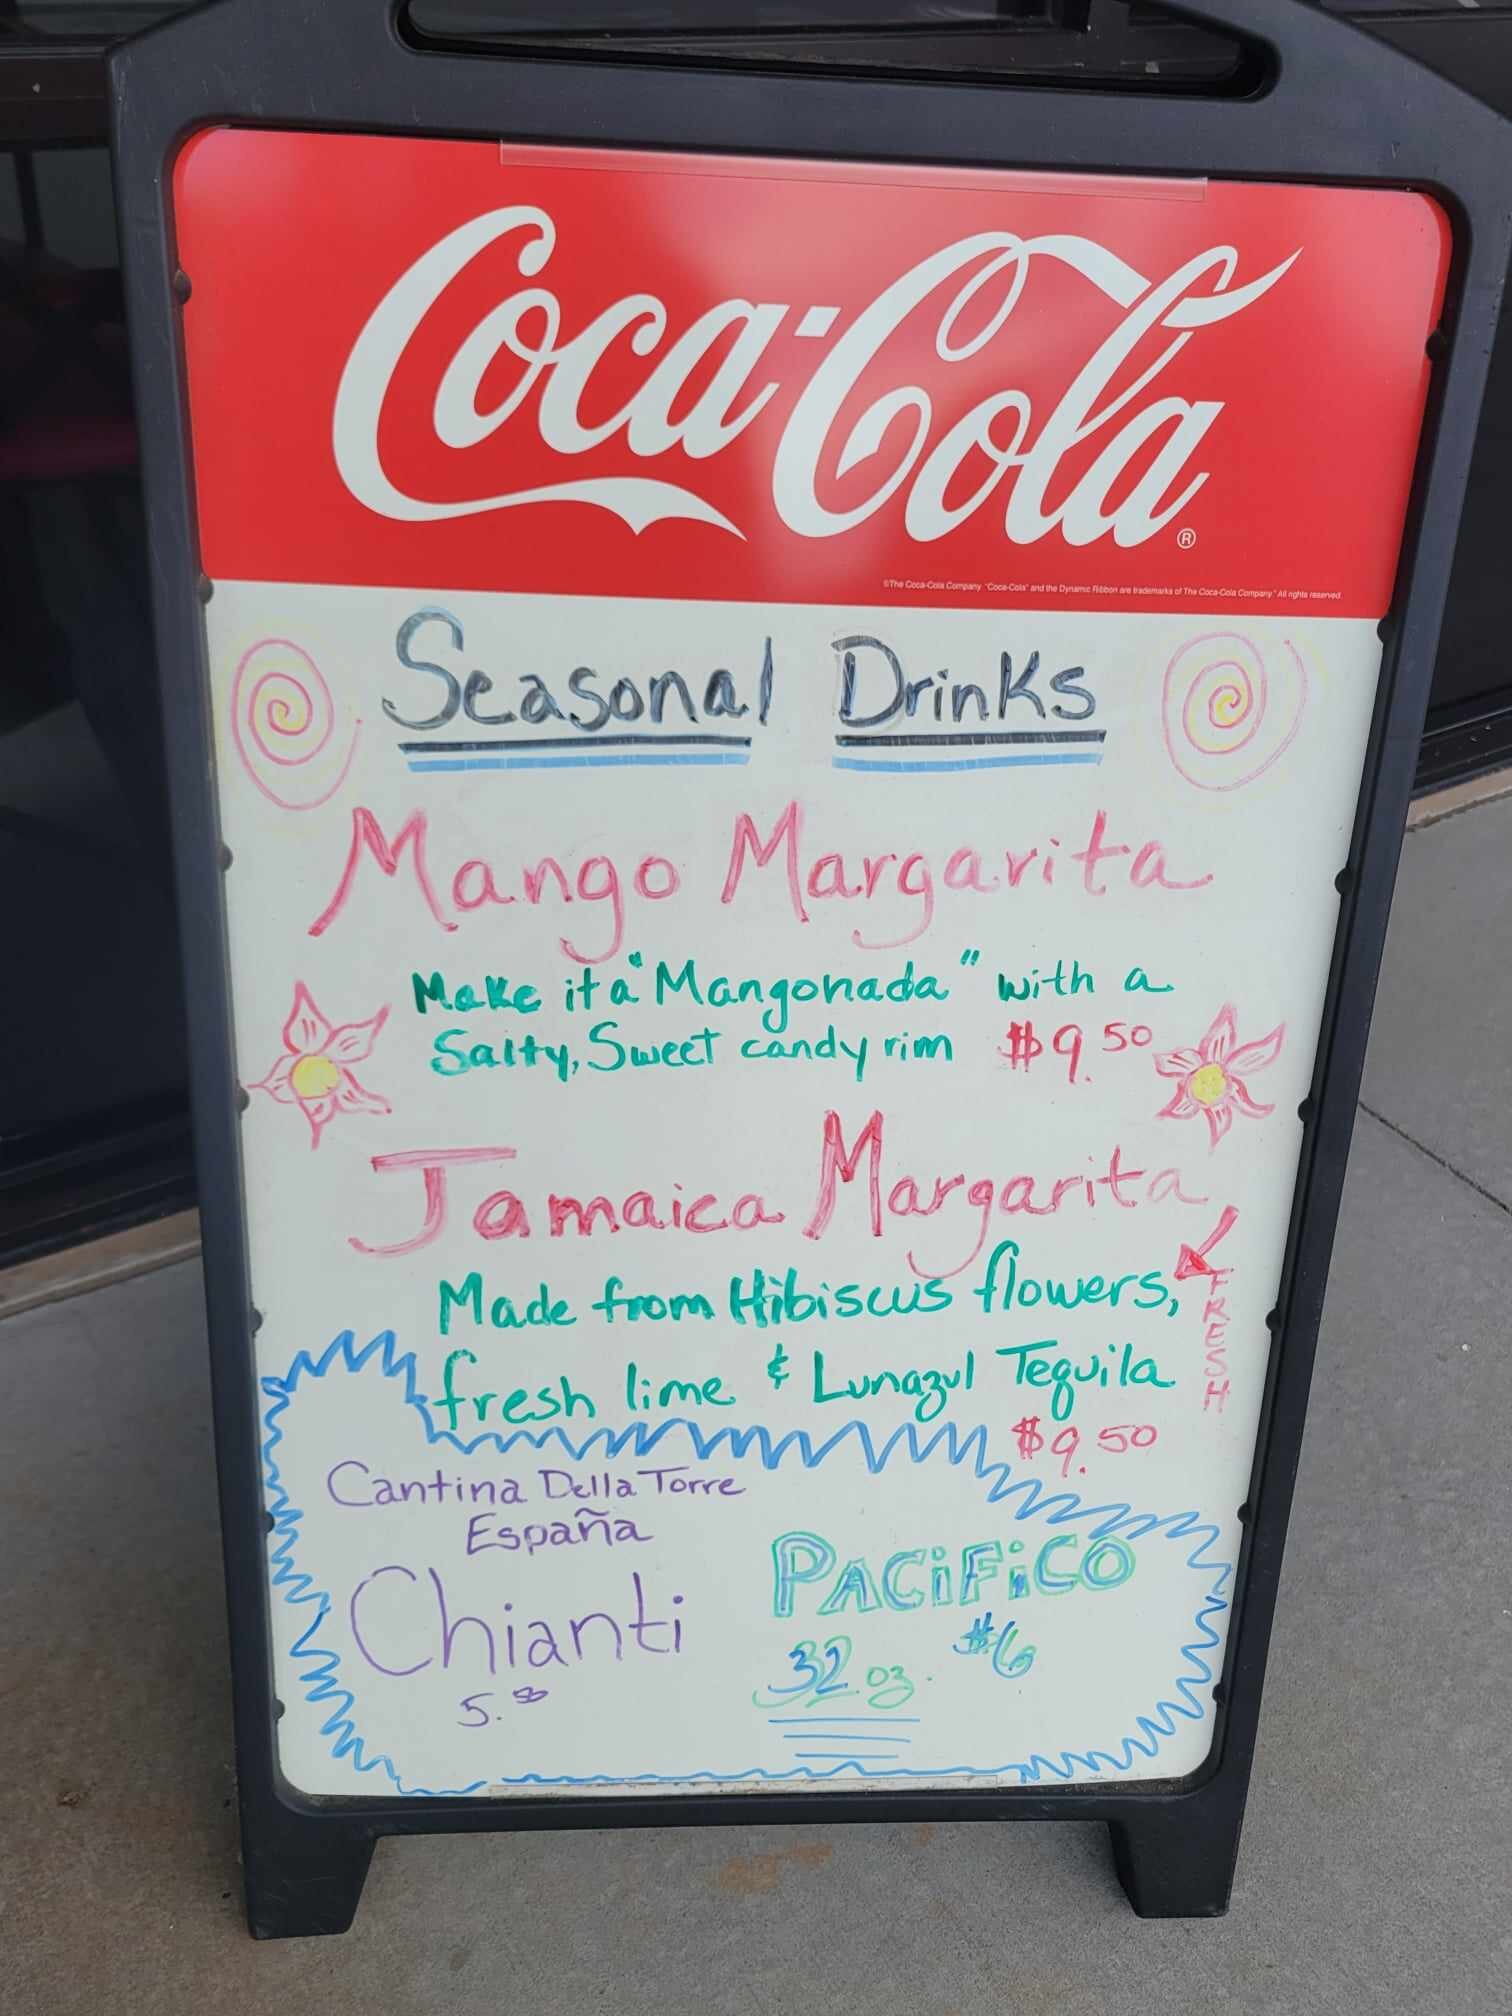 Coca-Cola
®
©The Coca-Cola Company. "Coca-Cola" and the Dynamic Ribbon are trademarks of The Coca-Cola Company. All rights reserved.
Seasonal Drinks
Mango Margarita
Make it a "Mangonada" with a
Salty, Sweet candy rim $9.50
Jamaica Margarita
Made from Hibiscus flowers,
FRESH
fresh lime & Lunazul Tequila
$9.50
Cantina Della Torre
España
Chianti
5.50
PACiFiCO
32 oz. $6